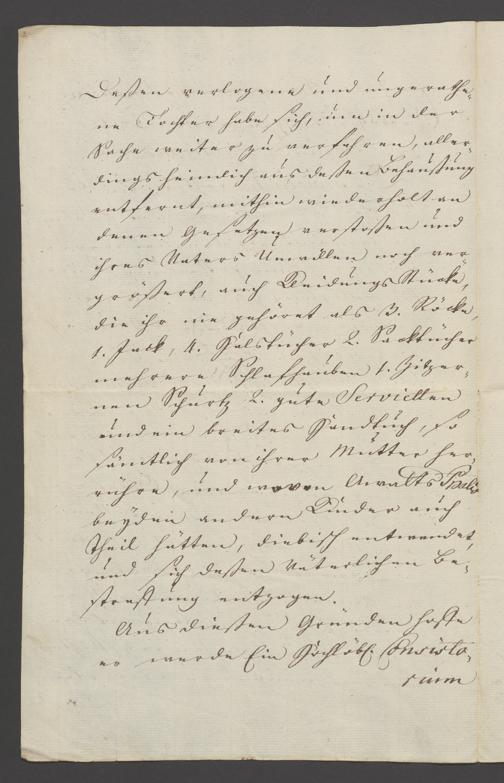 Deßen verlogene und ungerathe-
ne Tochter habe sich, um in der
Sache weiter zu verfahren, aller-
dings heimlich aus deßen Behaußung
entfernt, mithin wiederholt an
denen Gesetzen verstoßen und
ihres Vaters Unwillen noch ver-
größert, auch Kleidungs Stücke,
die ihr nie gehöret als 3. Röcke,
1. Jack, 4. Halstücher 2. Sacktücher
mehrere Schlafhauben 1. Zitzer-
nen Schurtz 2. gute Servietten
und ein breites Handtuch, so
sämtlich von ihrer Mutter her-
rühre, und wovon Anwalts
beyden andern Kinder auch
Theil hätten, diebisch entwendet,
und sich deßen Väterlichen Be-
straffung entzogen.
Aus dießen Gründen hoffe
er werde Ein Hochlöbl. Consisto-
rium